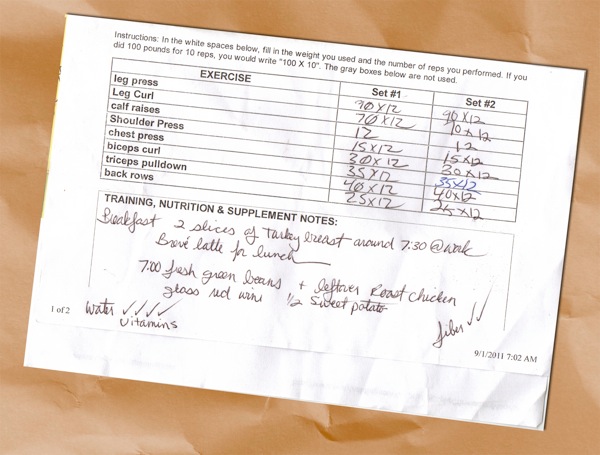 Instructions: In the white spaces below, fill in the weight you used and the number of reps you performed. If you
did 100 pounds for 10 reps, you would write "100 X 10". The gray boxes below are not used.
EXERCISE Set #1 Set #2
leg press 90 X 12 90 X 12
Leg Curl 70 X 12 70 X 12
calf raises 12 12
Shoulder Press 15 X 12 15 X 12
chest press 30 X 12 30 X 12
biceps curl 35 X 12 35 X 12
triceps pulldown 40 X 12 40 X 12
back rows 25 X 12 25 X 12
TRAINING, NUTRITION & SUPPLEMENT NOTES:
Breakfast 2 slices of Turkey breast around 7:30 @ work
Brevé latte for lunch
7:00 fresh green beans + leftover Roast chicken
glass red wine 1/2 sweet potato
water ✓✓✓✓ fiber ✓✓
vitamins
1 of 2 9/1/2011 7:02 AM